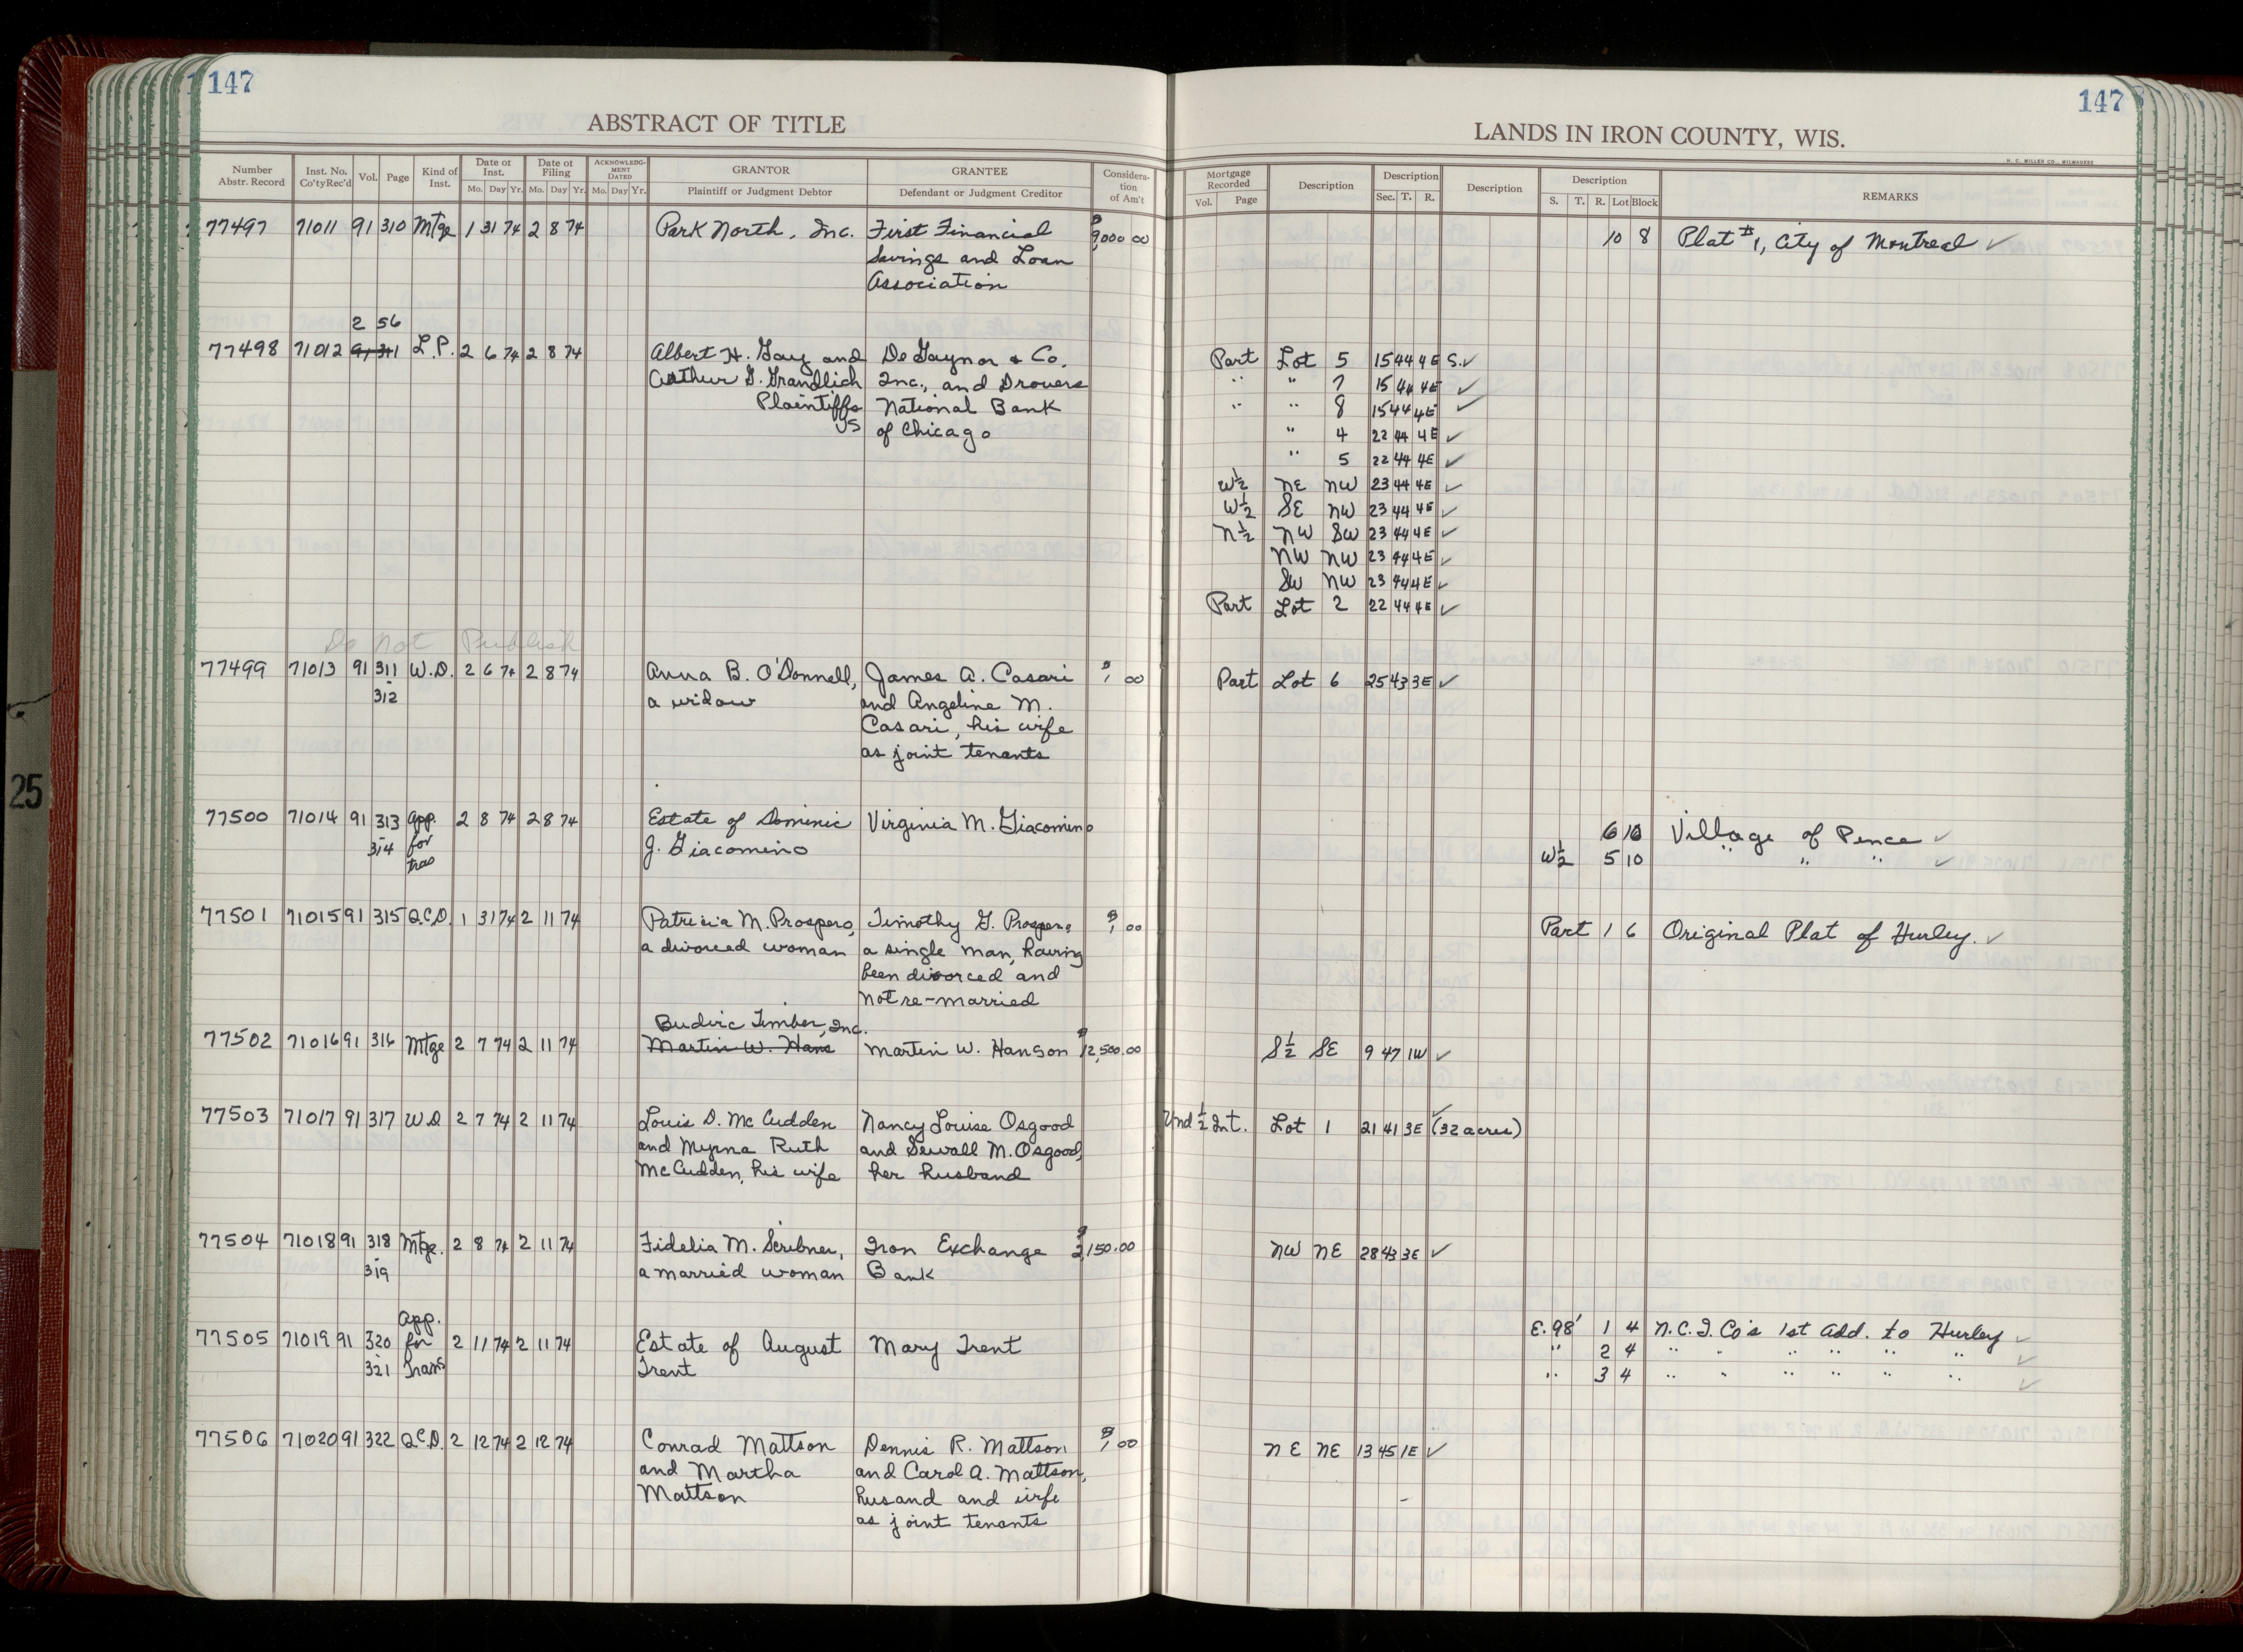 147
147
ABSTRACT OF TITLE
LANDS IN IRON COUNTY, WIS.
H. C. MILLER CO., MILWAUKEE
Number Abstr. Record | Inst. No. Co'ty Rec'd | Vol. | Page | Kind of Inst. | Date of Inst. Mo. Day Yr. | Date of Filing Mo. Day Yr. | ACKNOWLEDGMENT DATED Mo. Day Yr. | GRANTOR Plaintiff or Judgment Debtor | GRANTEE Defendant or Judgment Creditor | Consideration of Am't | Mortgage Recorded Vol. Page | Description | Description Sec. T. R. | Description | Description S. T. R. Lot Block | REMARKS
77497 71011 91 310 Mtge 1 31 74 2 8 74 Park North, Inc. First Financial $9,000 00 10 8 Plat #1, City of Montreal ✓
Savings and Loan
Association
2 56
77498 71012 91 311 L.P. 2 6 74 2 8 74 Albert H. Gay and De Gaynor & Co. Part Lot 5 15 44 4E S. ✓
Arthur G. Grandlich Inc., and Drovers " " 7 15 44 4E ✓
Plaintiffs National Bank " " 8 15 44 4E ✓
vs of Chicago " 4 22 44 4E ✓
" 5 22 44 4E ✓
W½ NE NW 23 44 4E ✓
W½ SE NW 23 44 4E ✓
N½ NW SW 23 44 4E ✓
NW NW 23 44 4E ✓
SW NW 23 44 4E ✓
Part Lot 2 22 44 4E ✓
Do Not Publish
77499 71013 91 311 W.D. 2 6 74 2 8 74 Anna B. O'Donnell, James A. Casari $1 00 Part Lot 6 25 43 3E ✓
- 312 a widow and Angeline M.
Casari, his wife
as joint tenants
77500 71014 91 313 App. 2 8 74 2 8 74 Estate of Dominic Virginia M. Giacomino 6 10 Village of Pence ✓
- 314 for J. Giacomino W½ 5 10 " " " ✓
tras
77501 71015 91 315 Q.C.D. 1 31 74 2 11 74 Patricia M. Prospero, Timothy G. Prospero $1 00 Part 1 6 Original Plat of Hurley. ✓
a divorced woman a single man, having
been divorced and
not re-married
Budvic Timber, Inc.
77502 71016 91 316 Mtge 2 7 74 2 11 74 Martin W. Hans Martin W. Hanson $12,500.00 S½ SE 9 47 1W ✓
77503 71017 91 317 W.D 2 7 74 2 11 74 Louis D. McCudden Nancy Louise Osgood Und ½ Int. Lot 1 21 41 3E ✓ (32 acres)
and Myrna Ruth and Sewall M. Osgood,
McCudden, his wife her husband
77504 71018 91 318 Mtge. 2 8 74 2 11 74 Fidelia M. Scribner, Iron Exchange $2,150.00 NW NE 28 43 3E ✓
319 a married woman Bank
App.
77505 71019 91 320 for 2 11 74 2 11 74 Estate of August Mary Trent E. 98' 1 4 N.C.I. Co's 1st Add. to Hurley ✓
- 321 Trans Trent " 2 4 " " " " " " ✓
" 3 4 " " " " " " ✓
77506 71020 91 322 Q.C.D. 2 12 74 2 12 74 Conrad Mattson Dennis R. Mattson $1 00 NE NE 13 45 1E ✓
and Martha and Carol A. Mattson,
Mattson husand and wife
as joint tenants
25